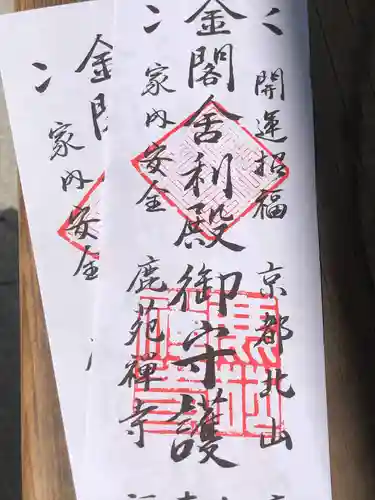 開運招福 京都北山
金閣舎利殿 御守護
家内安全 鹿苑禅寺
金閣
家内安全